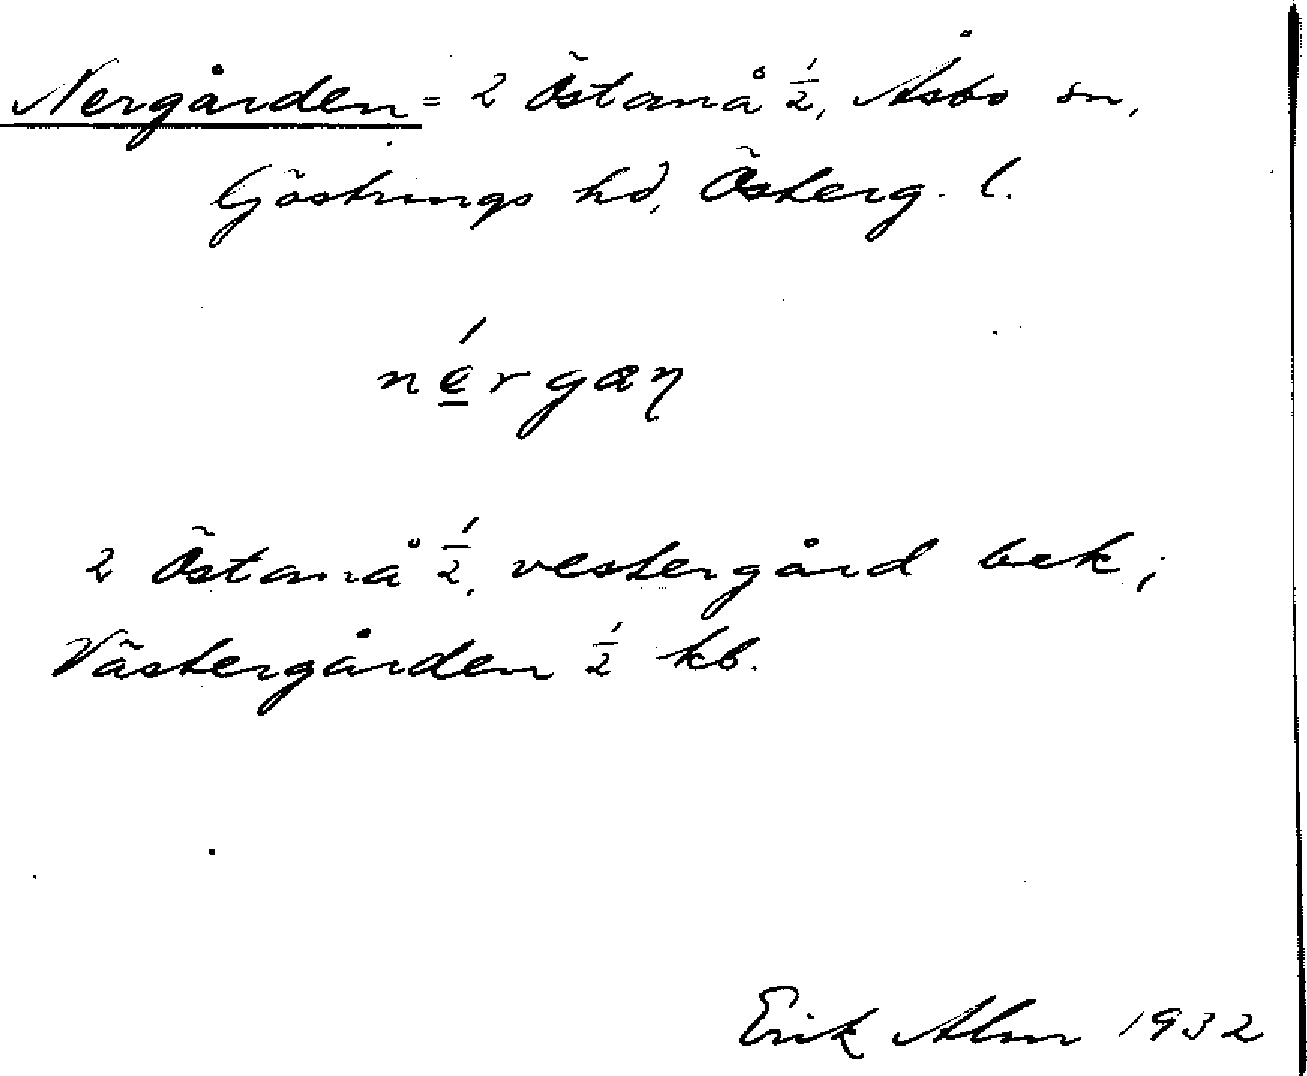 Nergården = 2 Östanå 1/2, Åsbo sn,
Göstrings hd, Österg. l.
né̱rgaꞃ
2 Östanå 1/2, vestergård bek;
Västergården 1/2 kb.
Erik Alm 1932